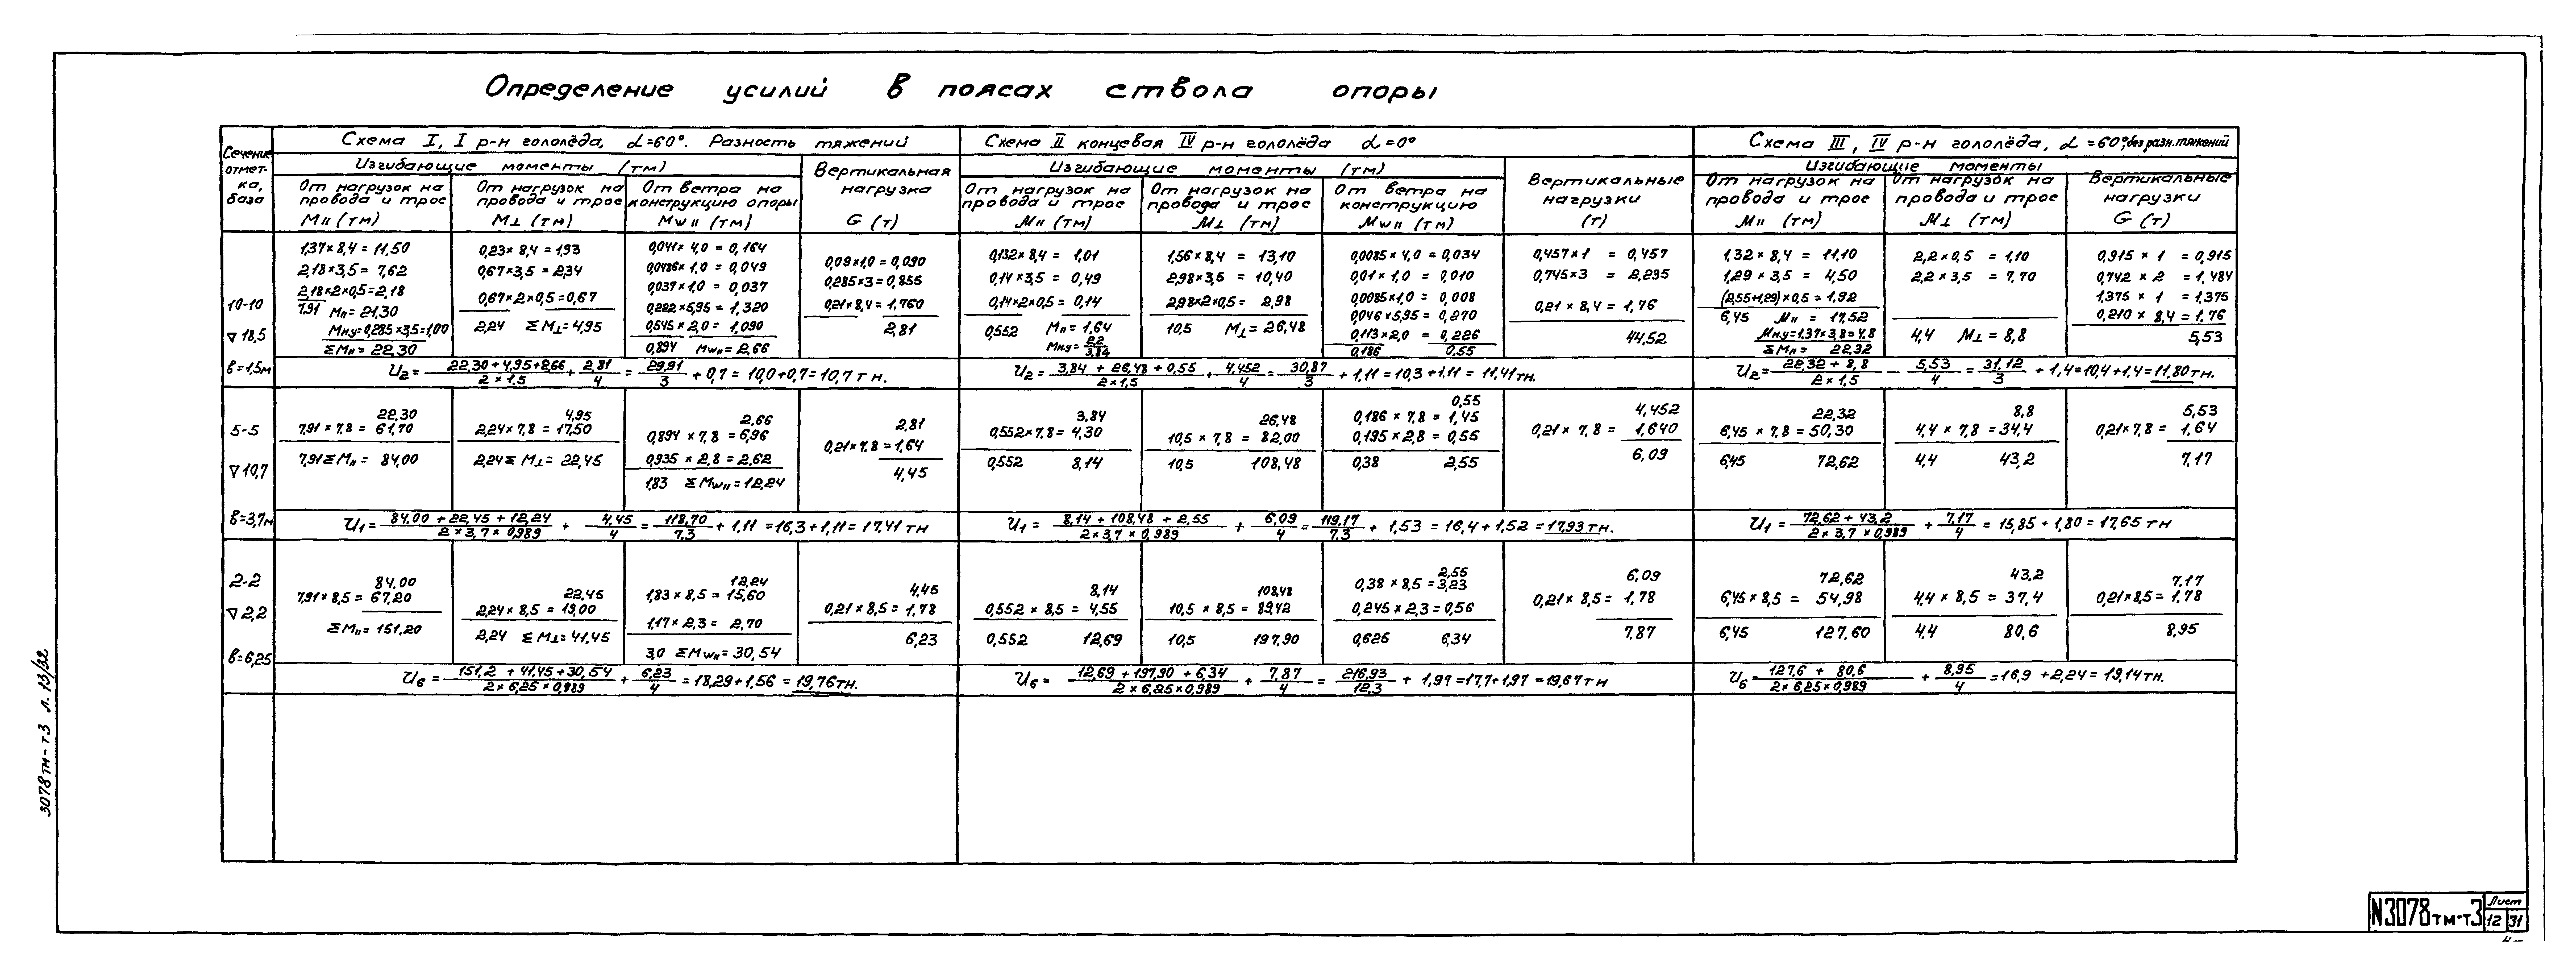 Определение усилий в поясах ствола опоры
Сечение отметка, база
Схема I, I р-н гололёда, α=60°. Разность тяжений
Изгибающие моменты (тм)
От нагрузок на провода и трос M॥ (тм)
От нагрузок на провода и трос M⊥ (тм)
От ветра на конструкцию опоры Mw॥ (тм)
Вертикальная нагрузка G (т)
Схема II концевая IV р-н гололёда α=0°
Изгибающие моменты (тм)
От нагрузок на провода и трос M॥ (тм)
От нагрузок на провода и трос M⊥ (тм)
От ветра на конструкцию Mw॥ (тм)
Вертикальные нагрузки (т)
Схема III, IV р-н гололёда, α=60° без разн. тяжений
Изгибающие моменты
От нагрузок на провода и трос M॥ (тм)
От нагрузок на провода и трос M⊥ (тм)
Вертикальные нагрузки G (т)
10-10
▽18,5
в=1,5м
1,37×8,4 = 11,50
2,18×3,5 = 7,62
2,18×2×0,5=2,18
7,91 M॥ = 21,30
Mну=0,285×3,5=1,00
ΣM॥ = 22,30
0,23×8,4 = 1,93
0,67×3,5 = 2,34
0,67×2×0,5=0,67
2,24 ΣM⊥=4,95
0,041×4,0 = 0,164
0,0486×1,0 = 0,049
0,037×1,0 = 0,037
0,222×5,95 = 1,320
0,545×2,0 = 1,090
0,894 Mw॥ = 2,66
0,09×1,0=0,090
0,285×3=0,855
0,21×8,4=1,760
2,81
0,132×8,4 = 1,01
0,14×3,5 = 0,49
0,14×2×0,5= 0,14
0,552 M॥ = 1,64
Mну= 2,2
3,84
1,56×8,4 = 13,10
2,98×3,5 = 10,40
2,98×2×0,5= 2,98
10,5 M⊥ = 26,48
0,0085×4,0 = 0,034
0,01×1,0 = 0,010
0,0085×1,0 = 0,008
0,046×5,95 = 0,270
0,113×2,0 = 0,226
0,186 0,55
0,457×1 = 0,457
0,745×3 = 2,235
0,21×8,4 = 1,76
44,52
1,32×8,4 = 11,10
1,29×3,5 = 4,50
(2,55+1,29)×0,5 = 1,92
6,45 M॥ = 17,52
Mну=1,37×3,8=4,8
ΣM॥ = 22,32
2,2×0,5 = 1,10
2,2×3,5 = 7,70
4,4 M⊥ = 8,8
0,915×1 = 0,915
0,742×2 = 1,484
1,375×1 = 1,375
0,210×8,4 = 1,76
5,53
U₂= (22,30+4,95+2,66)/(2×1,5) + 2,81/4 = 29,91/3 + 0,7 = 10,0+0,7=10,7 тн.
U₂= (3,84+26,48+0,55)/(2×1,5) + 4,452/4 = 30,87/3 + 1,11 = 10,3+1,11 = 11,41тн.
U₂= (22,32+8,8)/(2×1,5) – 5,53/4 = 31,12/3 + 1,4=10,4+1,4=11,80тн.
5-5
▽10,7
в=3,7м
22,30
7,91×7,8 = 61,70
7,91 ΣM॥ = 84,00
4,95
2,24×7,8 = 17,50
2,24 ΣM⊥= 22,45
2,66
0,894×7,8 = 6,96
0,935×2,8 = 2,62
1,83 ΣMw॥ = 12,24
2,81
0,21×7,8=1,64
4,45
3,84
0,552×7,8= 4,30
0,552 8,14
26,48
10,5×7,8 = 82,00
10,5 108,48
0,55
0,186×7,8 = 1,45
0,195×2,8 = 0,55
0,38 2,55
4,452
0,21×7,8 = 1,640
6,09
22,32
6,45×7,8 = 50,30
6,45 72,62
8,8
4,4×7,8 = 34,4
4,4 43,2
5,53
0,21×7,8 = 1,64
7,17
U₁= (84,00+22,45+12,24)/(2×3,7×0,989) + 4,45/4 = 118,70/7,3 + 1,11 =16,3+1,11= 17,41 тн
U₁= (8,14+108,48+2,55)/(2×3,7×0,989) + 6,09/4 = 119,17/7,3 + 1,53 = 16,4+1,52 = 17,93 тн.
U₁= (72,62+43,2)/(2×3,7×0,989) + 7,17/4 = 15,85+1,80=17,65 тн
2-2
▽2,2
в=6,25
84,00
7,91×8,5 = 67,20
ΣM॥ = 151,20
22,45
2,24×8,5 = 19,00
2,24 ΣM⊥=41,45
12,24
1,83×8,5 = 15,60
1,17×2,3 = 2,70
3,0 ΣMw॥ = 30,54
4,45
0,21×8,5 = 1,78
6,23
8,14
0,552×8,5 = 4,55
0,552 12,69
108,48
10,5×8,5 = 89,42
10,5 197,90
2,55
0,38×8,5 = 3,23
0,245×2,3=0,56
0,625 6,34
6,09
0,21×8,5 = 1,78
7,87
72,62
6,45×8,5 = 54,98
6,45 127,60
43,2
4,4×8,5 = 37,4
4,4 80,6
7,17
0,21×8,5= 1,78
8,95
U₆= (151,2+41,45+30,54)/(2×6,25×0,989) + 6,23/4 = 18,29+1,56 = 19,76тн.
U₆= (12,69+197,90+6,34)/(2×6,25×0,989) + 7,87/4 = 216,93/12,3 + 1,97=17,7+1,97 = 19,67тн
U₆= (127,6+80,6)/(2×6,25×0,989) + 8,95/4 =16,9+2,24= 19,14тн.
3078тм-т3 л. 13/32
N3078тм-т3
Лист
12 31